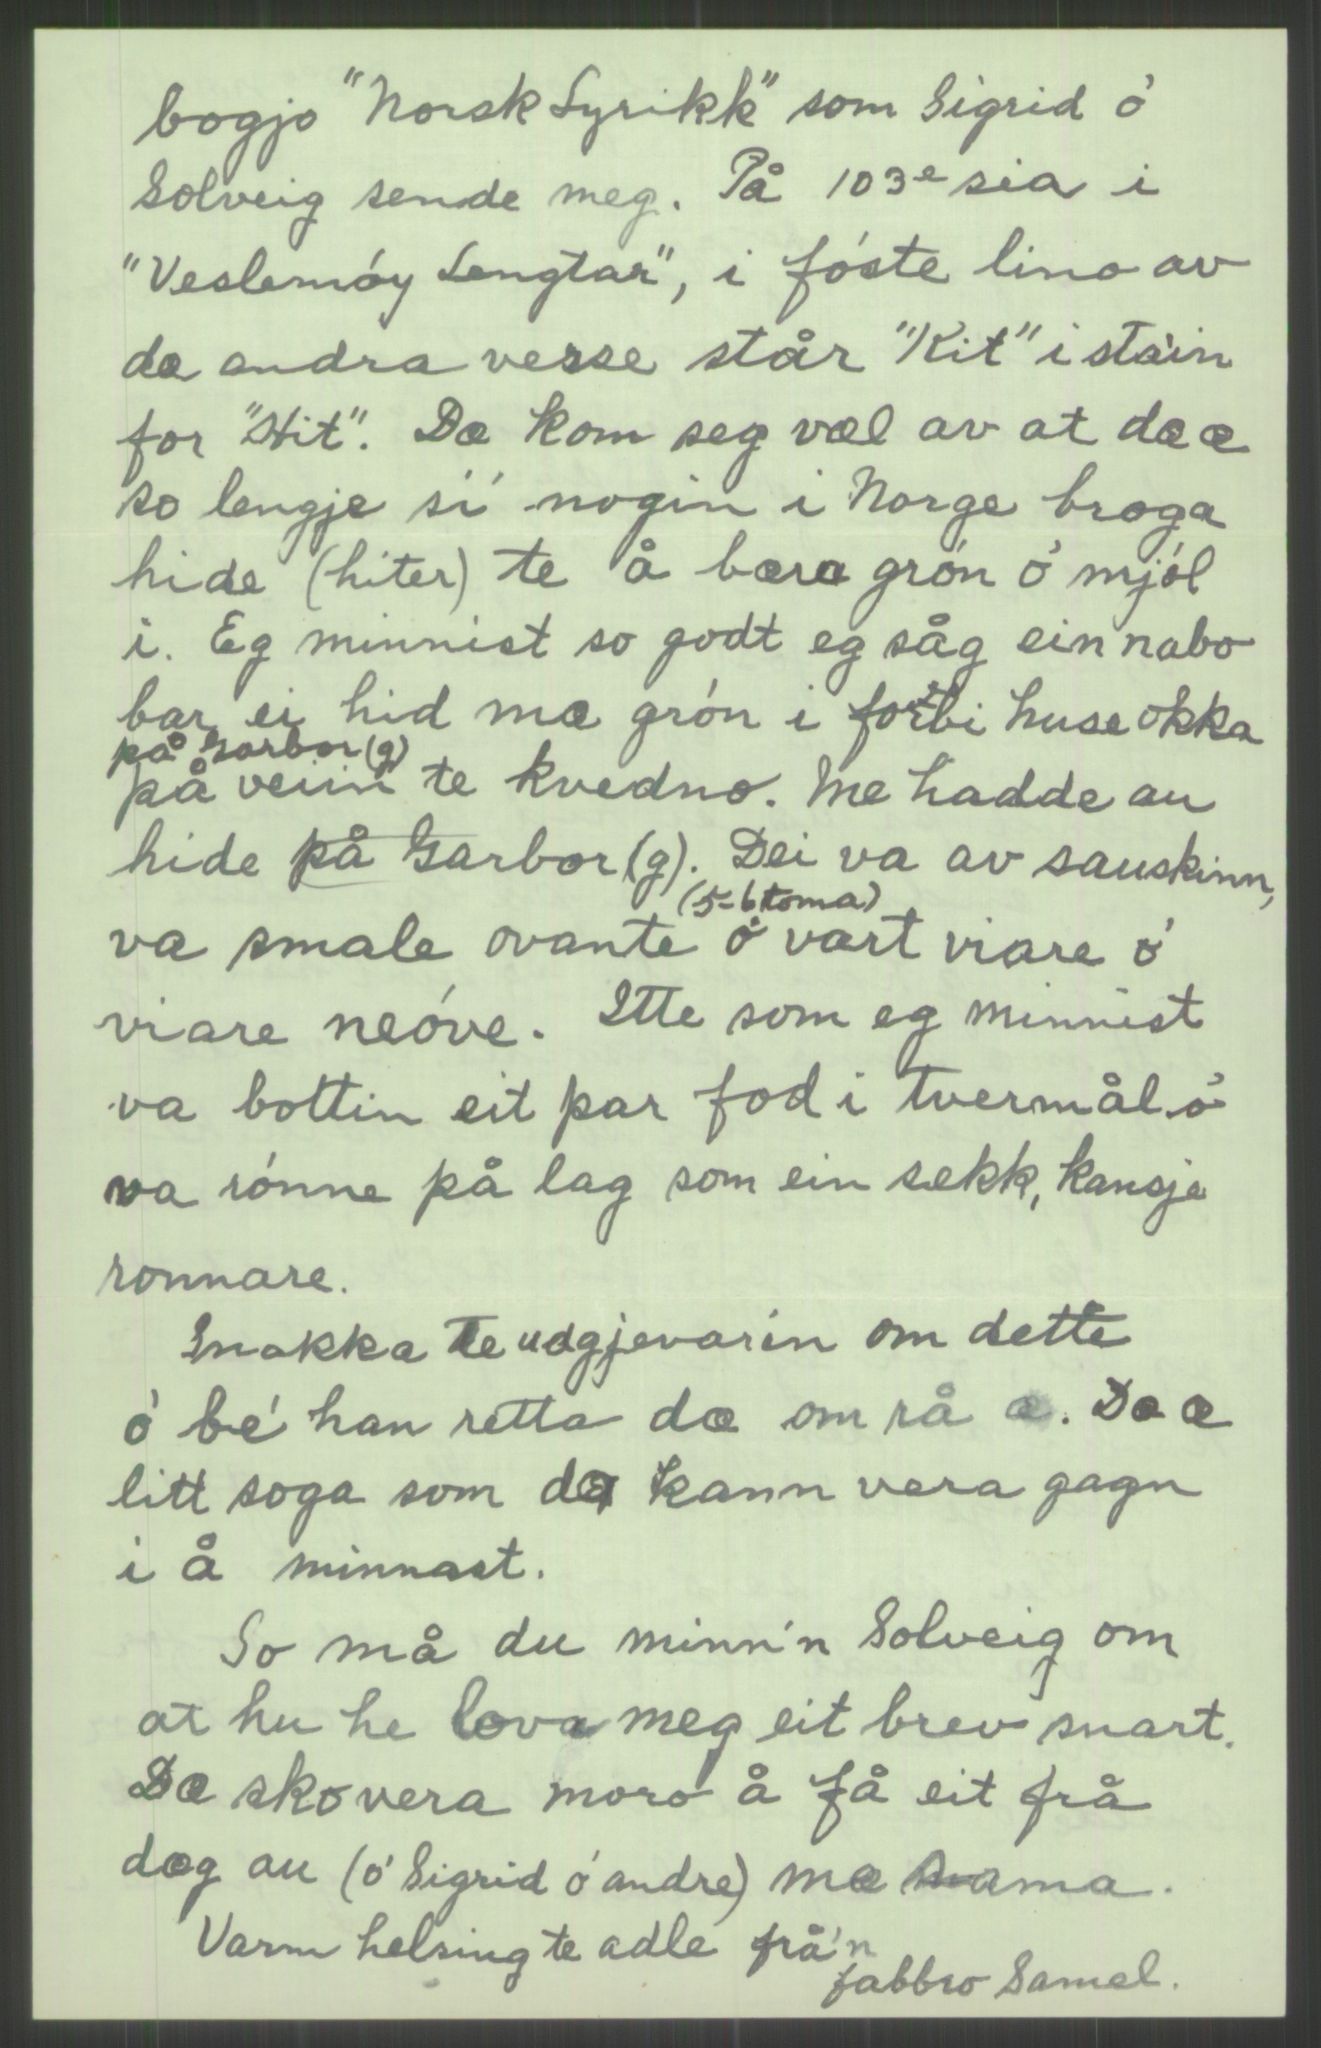 bogjo "Norsk Lyrikk" som Sigrid ó
Solveig sende meg. På 103e sia i
"Veslemóy Lengtar", i fóste lino av
dæ andra verse står "Kit" i sta'in
for "Hit". Dæ kom seg væl av at dæ æ
so lengje sí nogin i Norge broga
hide (hiter) te å bæra grón ó mjól
i. Eg minnist so godt eg såg ein nabo
bar ei hid mæ grón i forbi huse okka
på Garbor(g)
på veiin te kvedno. Me hadde au
hide på Garbor(g). Dei va av sauskinn,
(5-6 toma)
va smale ovante ó vart viare ó
viare neóve. Itte som eg minnist
va bottin eit par fod i tvermål ó
va rónne på lag som ein sekk, kansje
ronnare.
Snakka te udgjevarin om dette
ó bé han retta dæ om rå æ. Dæ æ
litt soga som dæ kann vera gagn
i å minnast.
So må du minn'n Solveig om
at hu he lova meg eit brev snart.
Dæ sko vera moro å få eit frå
dæg au (ó Sigrid ó andre) mæ ama.
Varm helsing te adle frå'n
fabbro Samel.